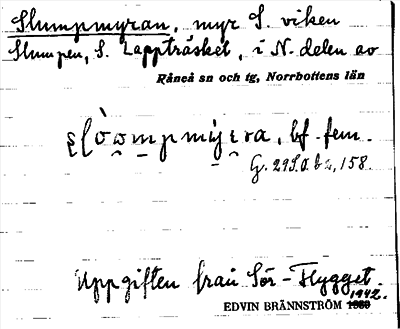 Slumpmyran, myr S. viken
Slumpen, S. Lappträsket, i N. delen av
Råneå sn och tg, Norrbottens län
bf. fem.
G. 29 S.O. b 2, 158.
Uppgiften från Sör-Flygget.
1942.
EDVIN BRÄNNSTRÖM 1939